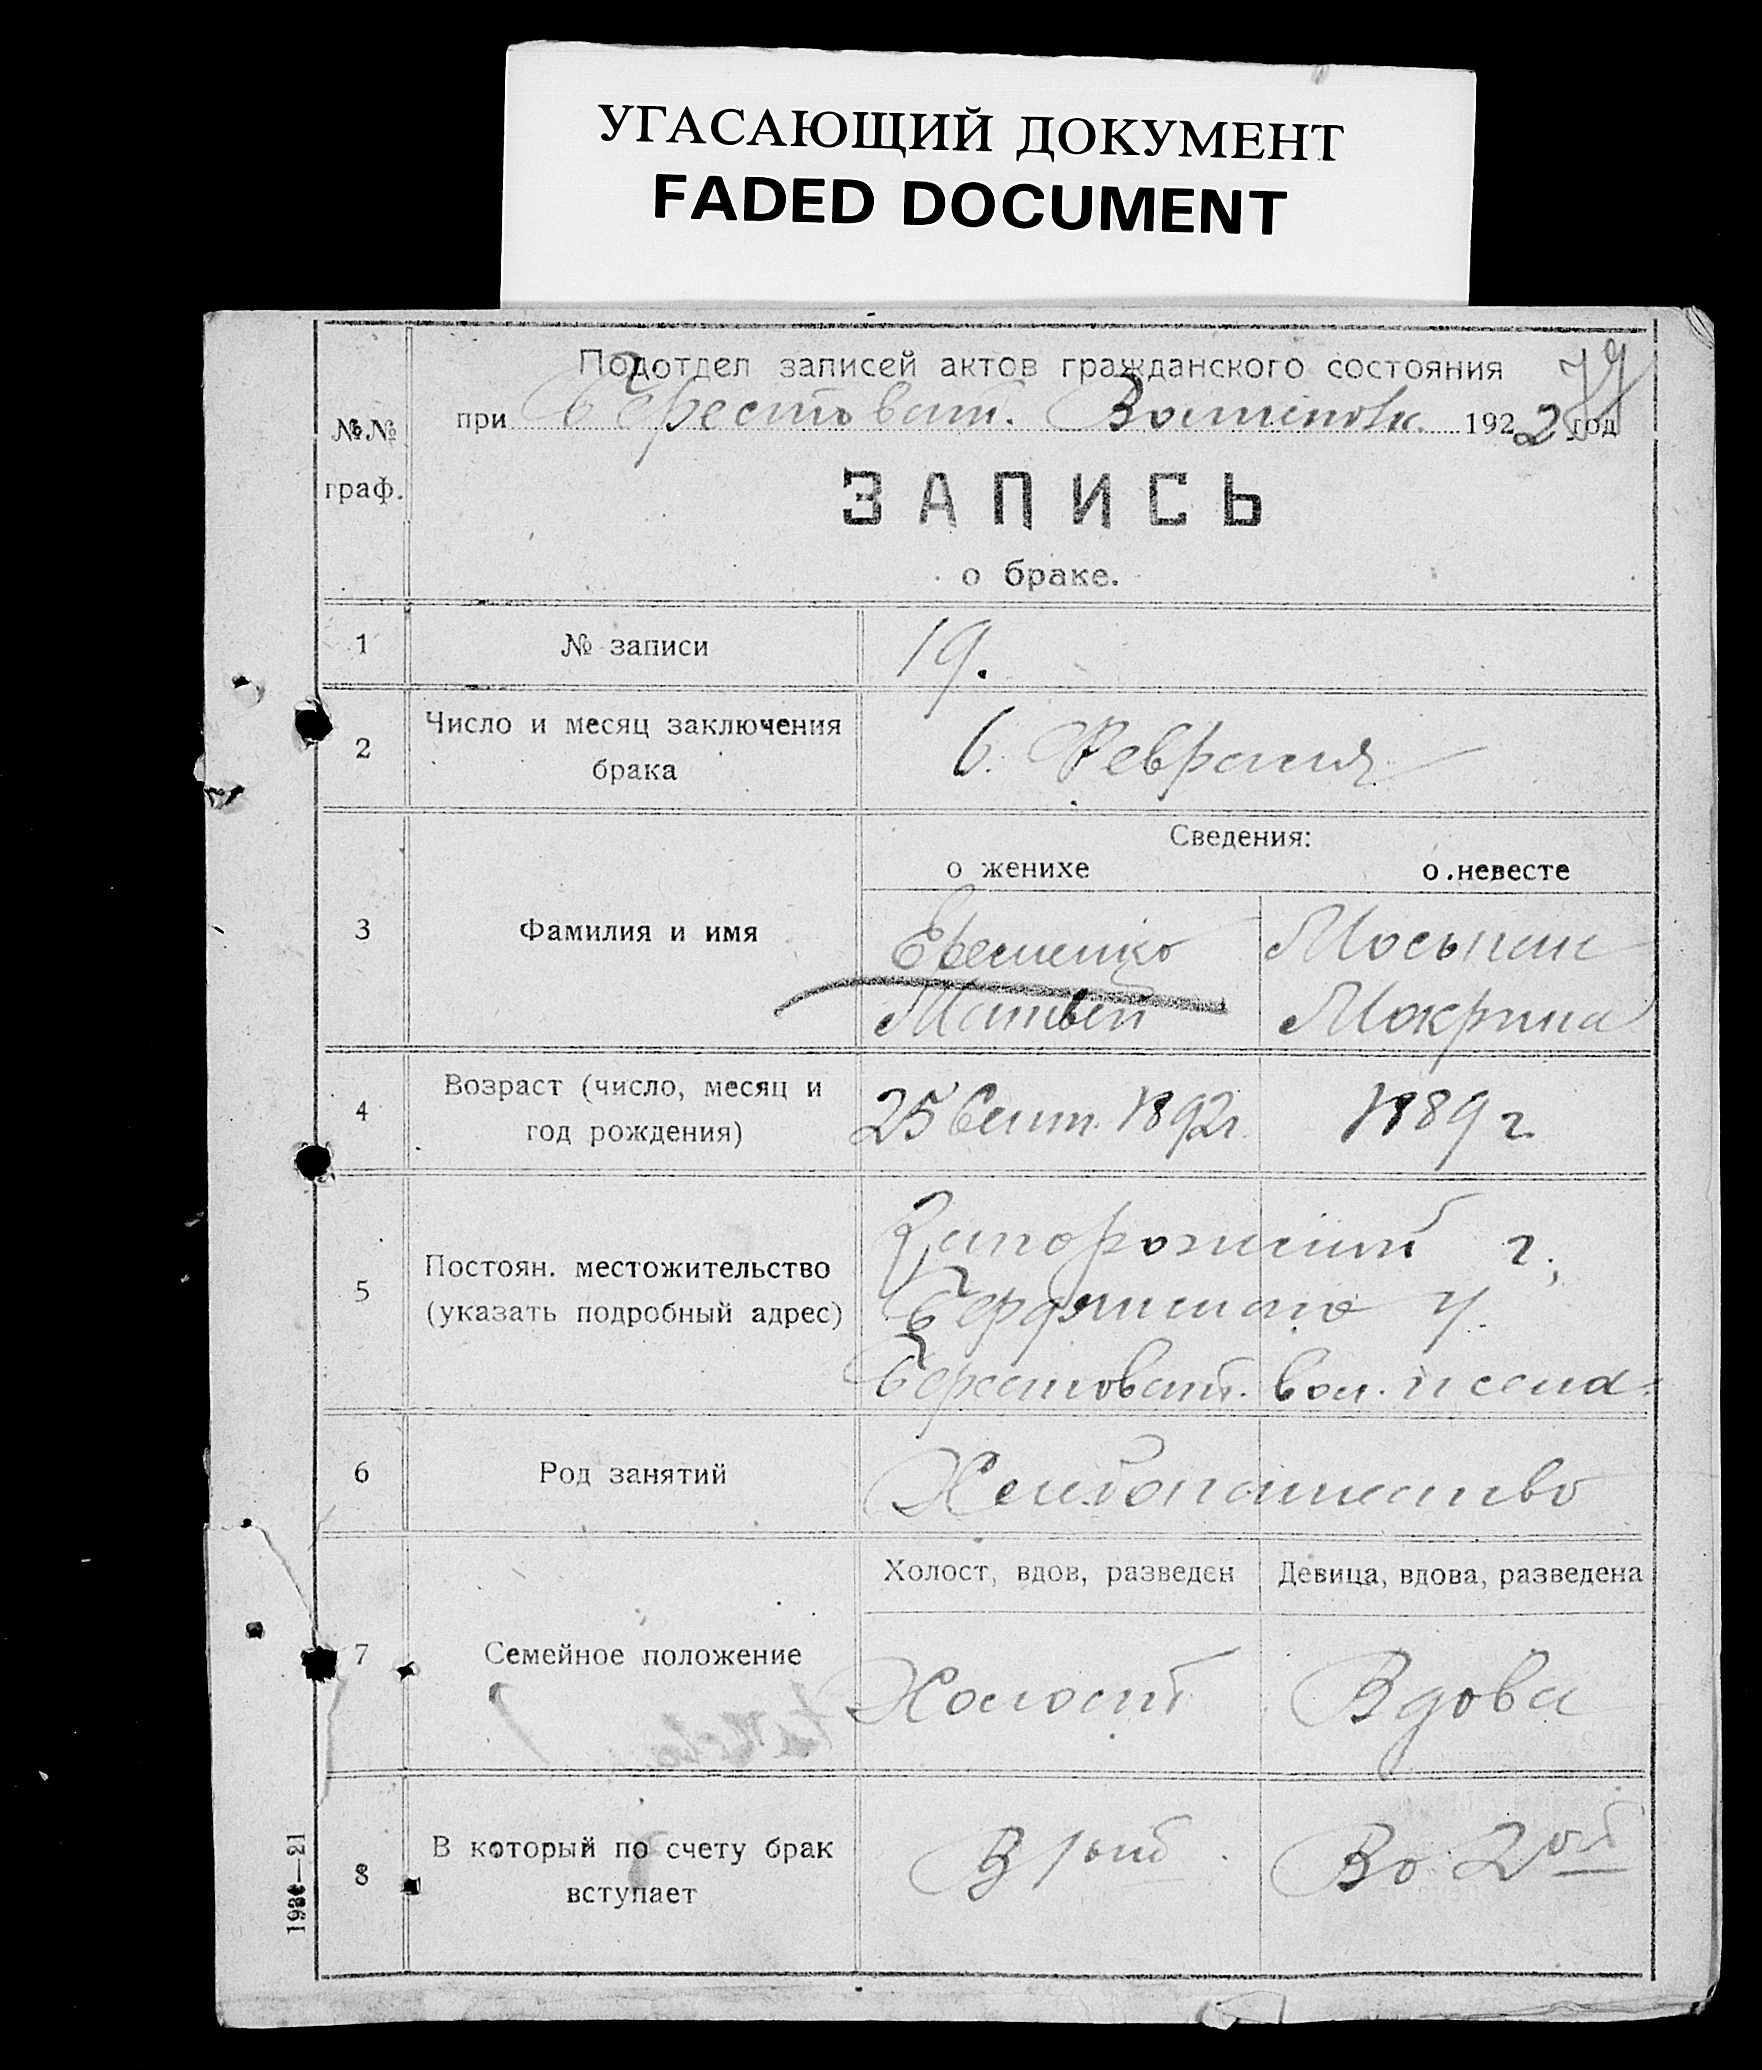 УГАСАЮЩИЙ ДОКУМЕНТ
FADED DOCUMENT
Подотдел записей актов гражданского состояния
при Берестоват. 1922 год
№№ граф.
ЗАПИСЬ
о браке.
1 № записи 19.
2 Число и месяц заключения брака 6. Февраля
Сведения:
о женихе о невесте
3 Фамилия и имя
Ефеменко Моспан
Матвей Мокрина
4 Возраст (число, месяц и год рождения) 25 Сент. 1892 г. 1889 г.
5 Постоян. местожительство (указать подробный адрес)
Запорожской г.,
Бердянского у.
Берестоват. вол. и села.
6 Род занятий Хлебопашество
Холост, вдов, разведен Девица, вдова, разведена
7 Семейное положение Холост Вдова
8 В который по счету брак вступает В 1ый Во 2ой